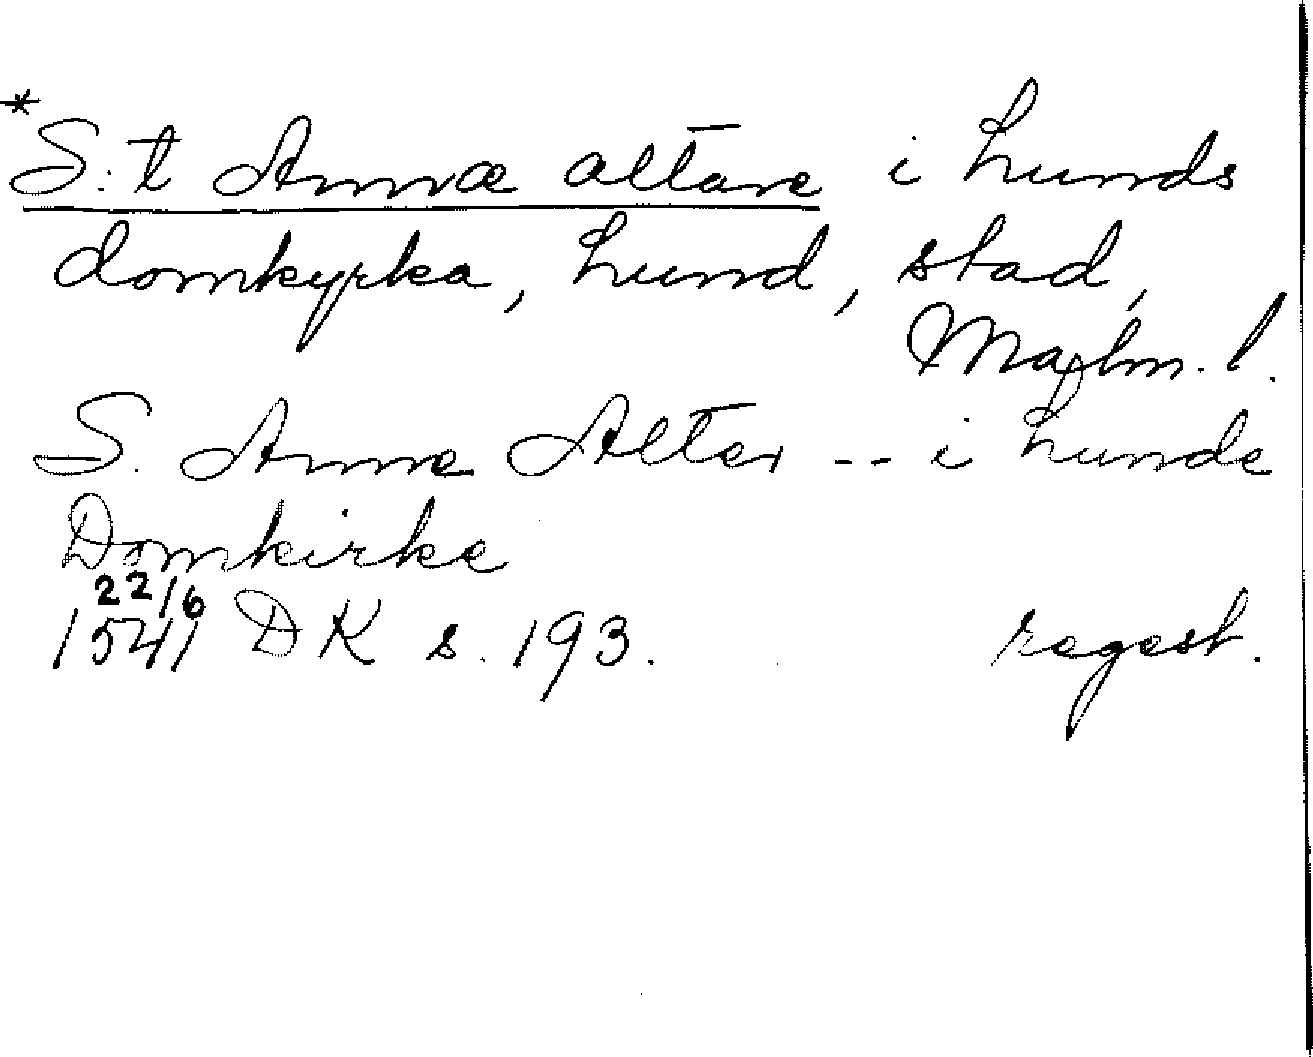 *S:t Annæ altare i Lunds
domkyrka, Lund, stad,
Malm. l.
S. Anne Alter -- i Lunde
Domkirke
22/6
1541 DK s. 193. regest.